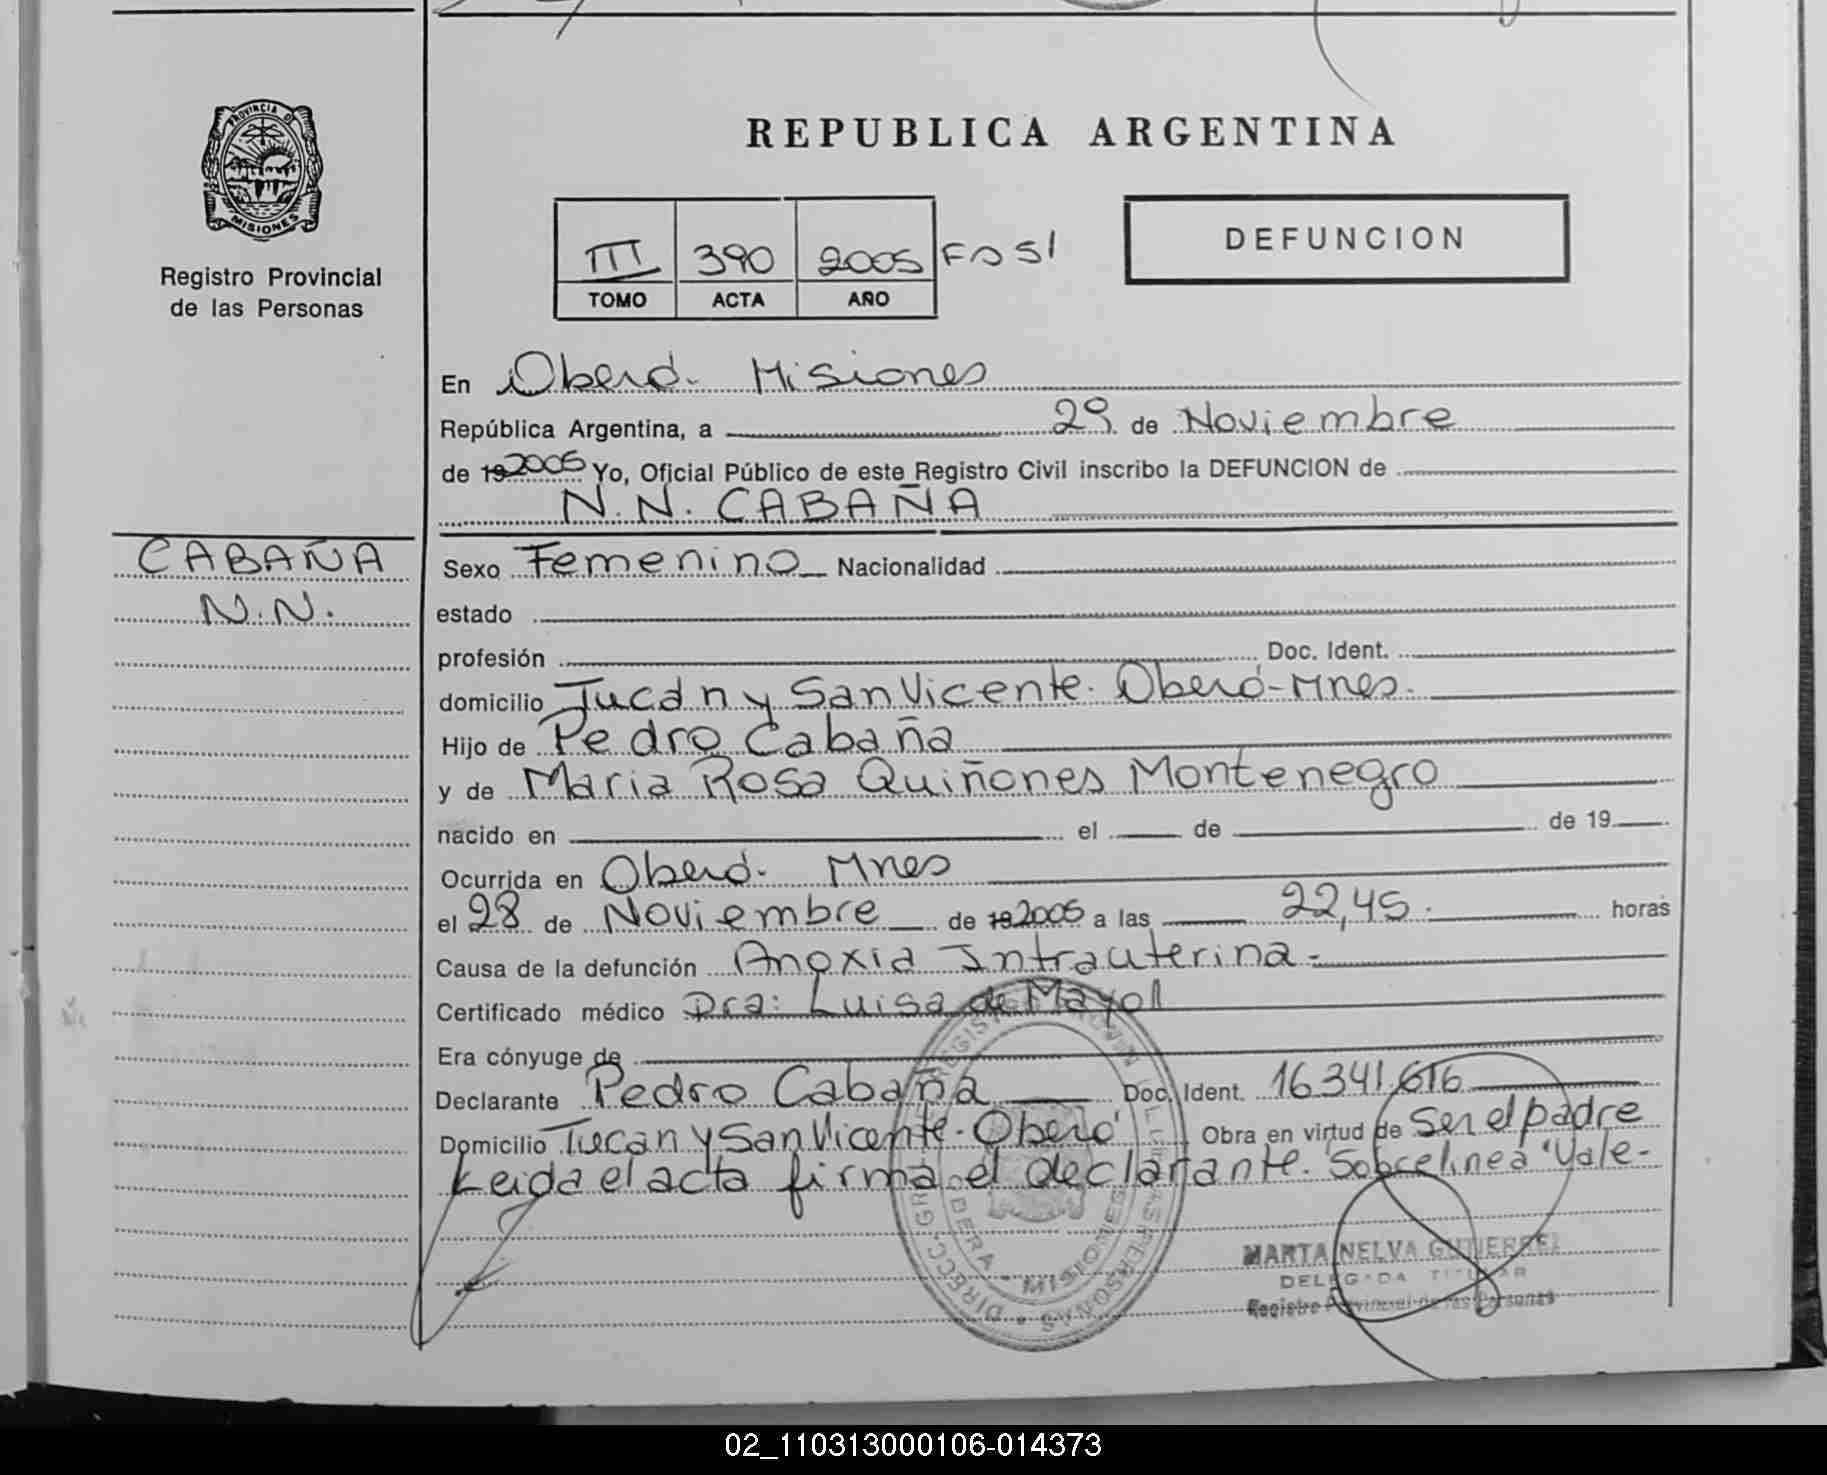 PROVINCIA DE
MISIONES
Registro Provincial
de las Personas
REPUBLICA ARGENTINA
III 390 2005 Fo 51
TOMO ACTA AÑO
DEFUNCION
En Oberá. Misiones
República Argentina, a 29 de Noviembre
de 19 2005 Yo, Oficial Público de este Registro Civil inscribo la DEFUNCION de
N.N. CABAÑA
CABAÑA
N.N.
Sexo Femenino Nacionalidad
estado
profesión Doc. Ident.
domicilio Tucán y San Vicente. Oberá-Mnes.
Hijo de Pedro Cabaña
y de Maria Rosa Quiñones Montenegro
nacido en el de de 19
Ocurrida en Oberá. Mnes
el 28 de Noviembre de 19 2005 a las 22,45. horas
Causa de la defunción Anoxia Intrauterina.-
Certificado médico Dra: Luisa de Mayol
Era cónyuge de
Declarante Pedro Cabaña Doc. Ident. 16341.616
Domicilio Tucan y San Vicente. Oberá Obra en virtud de Ser el padre
Leida el acta firma el declarante. Sobrelinea "Vale-
MARTA NELVA GUTIERREZ
DELEGADA TITULAR
Registro Provincial de las Personas
02_110313000106-014373